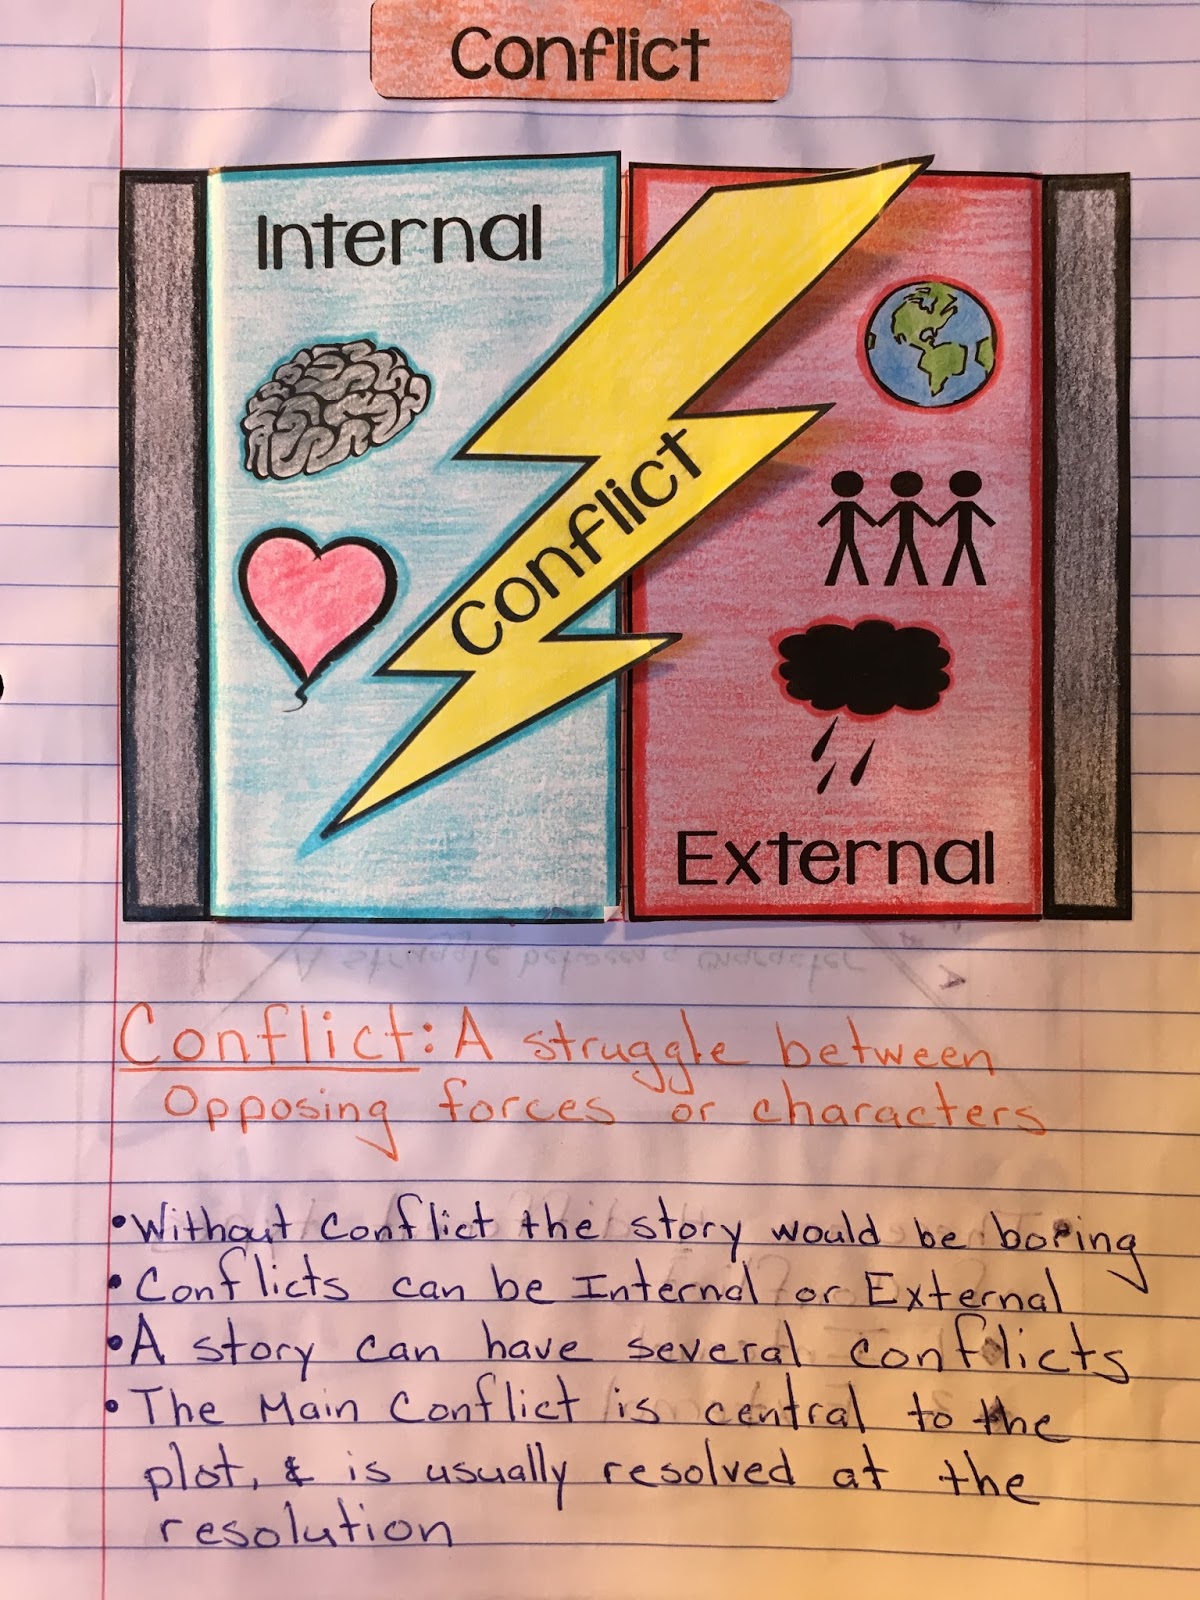 Conflict
Internal
Conflict
External
A struggle between a character
Conflict: A struggle between
Opposing forces or characters
•Without Conflict the story would be boring
•Conflicts can be Internal or External
•A story can have several conflicts
•The Main Conflict is central to the
plot, & is usually resolved at the
resolution